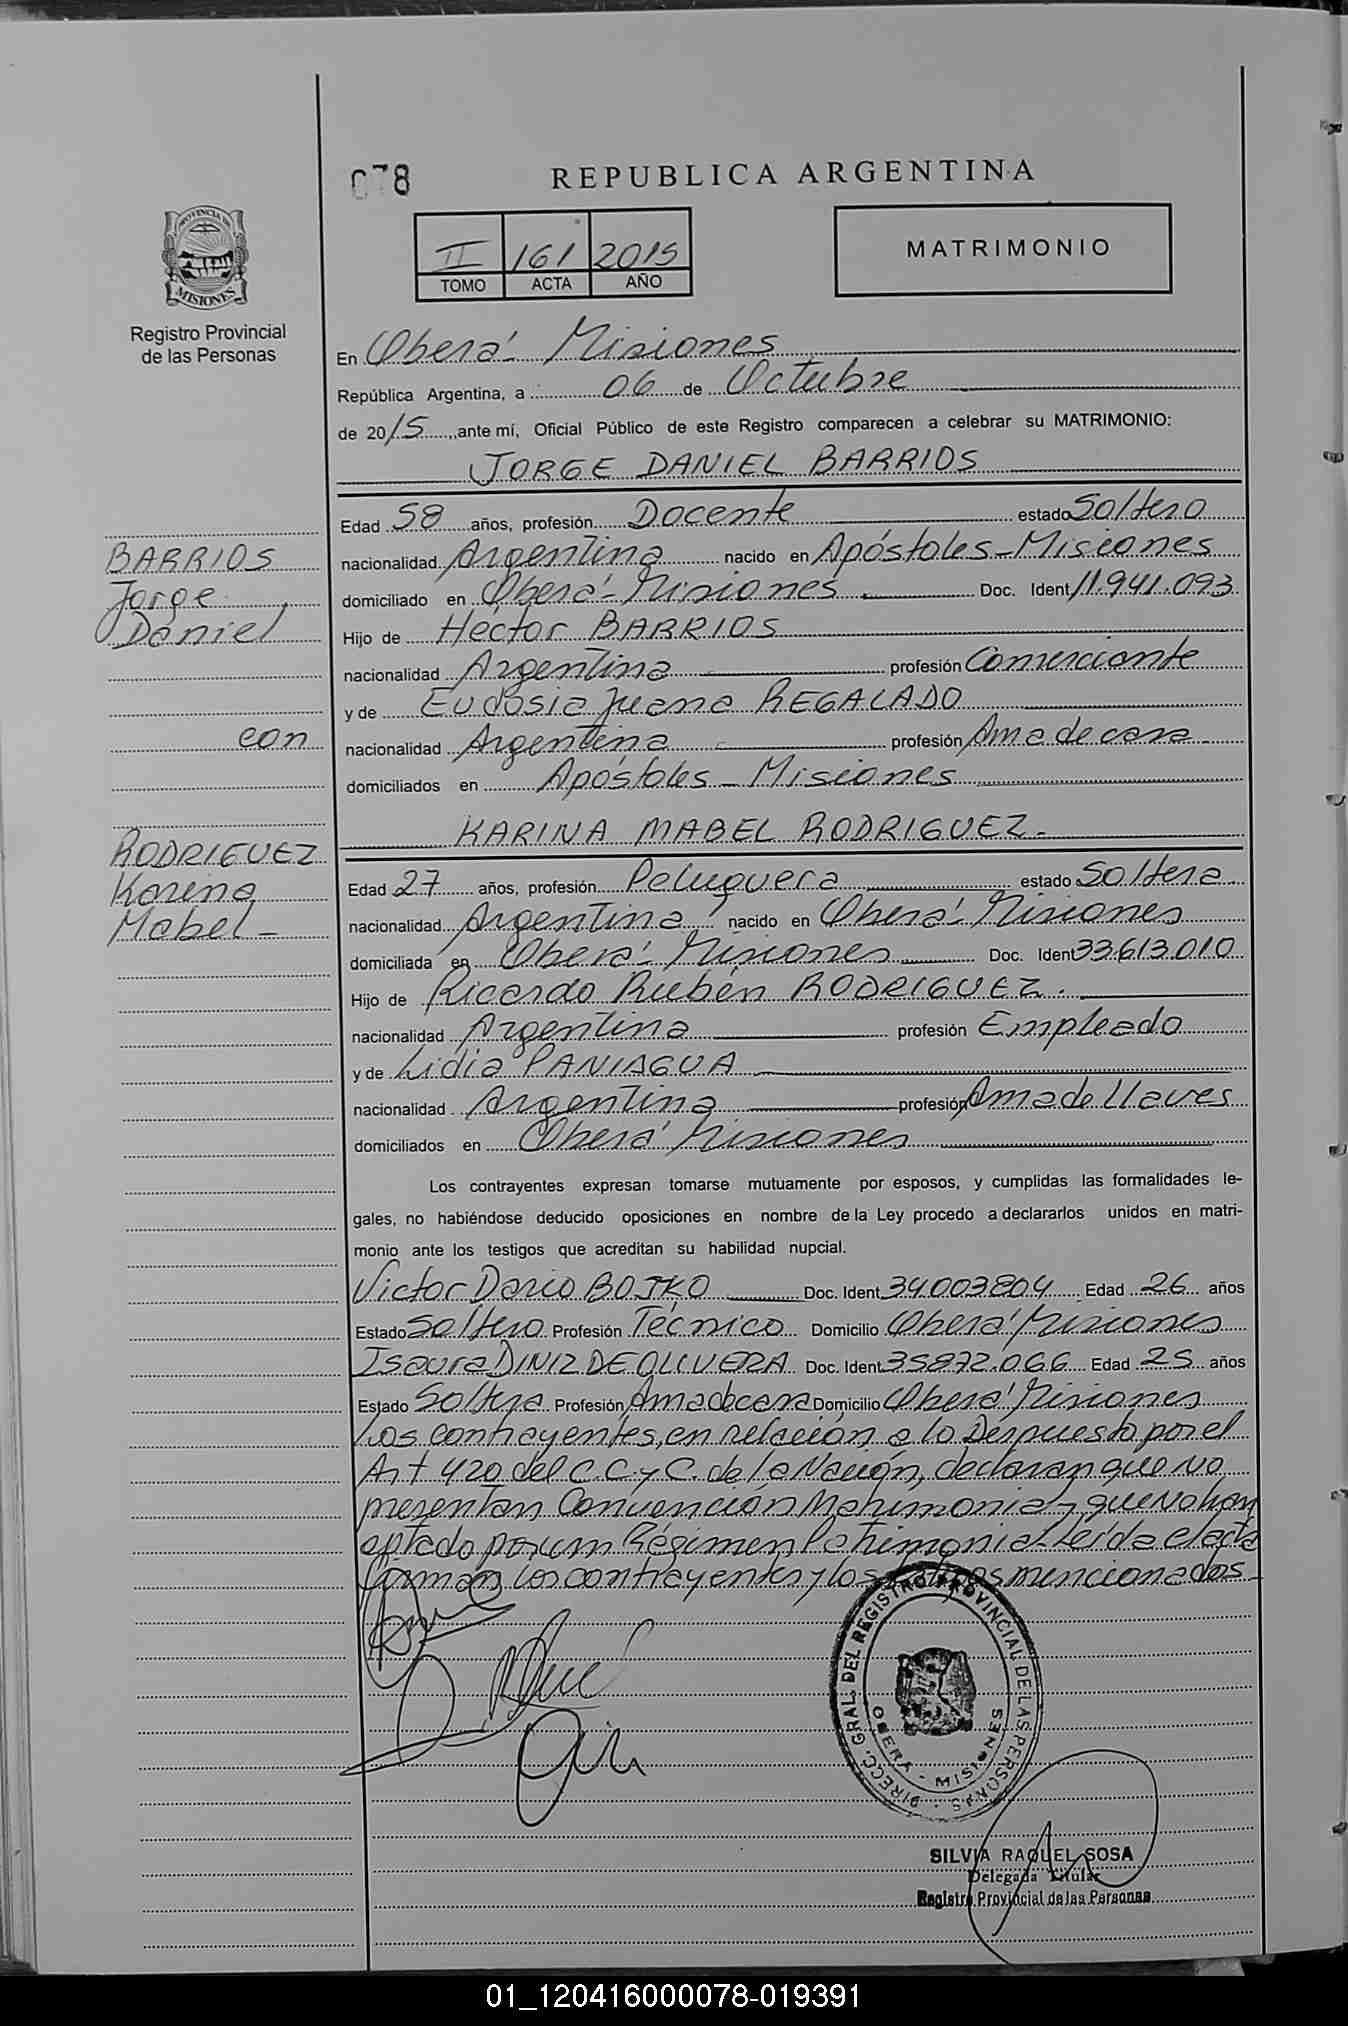 078
REPUBLICA ARGENTINA
II 161 2015
TOMO ACTA AÑO
MATRIMONIO
PROVINCIA DE
MISIONES
Registro Provincial
de las Personas
En Oberá - Misiones
República Argentina, a 06 de Octubre
de 2015, ante mí, Oficial Público de este Registro comparecen a celebrar su MATRIMONIO:
JORGE DANIEL BARRIOS
Edad 58 años, profesión Docente estado Soltero
BARRIOS
Jorge
Daniel
nacionalidad Argentina nacido en Apóstoles - Misiones
domiciliado en Oberá - Misiones Doc. Ident 11.941.093
Hijo de Héctor BARRIOS
nacionalidad Argentina profesión Comerciante
y de Eudosia Juana REGALADO
con
nacionalidad Argentina profesión Ama de casa
domiciliados en Apóstoles - Misiones
KARINA MABEL RODRIGUEZ.
RODRIGUEZ
Karina
Mabel -
Edad 27 años, profesión Peluquera estado Soltera
nacionalidad Argentina nacido en Oberá - Misiones
domiciliada en Oberá - Misiones Doc. Ident 33.613.010
Hijo de Ricardo Rubén RODRIGUEZ.
nacionalidad Argentina profesión Empleado
y de Lidia PANIAGUA
nacionalidad Argentina profesión Ama de LLaves
domiciliados en Oberá Misiones
Los contrayentes expresan tomarse mutuamente por esposos, y cumplidas las formalidades le-
gales, no habiéndose deducido oposiciones en nombre de la Ley procedo a declararlos unidos en matri-
monio ante los testigos que acreditan su habilidad nupcial.
Victor Dario BOJKO Doc. Ident 34.003804 Edad 26 años
Estado Soltero Profesión Técnico Domicilio Oberá Misiones
Isaura DINIZ DE OLIVERA Doc. Ident 35872.066 Edad 25 años
Estado Soltera Profesión Ama de casa Domicilio Oberá Misiones
Los contrayentes, en relación a lo Dispuesto por el
Art 420 del C.C. y C. de la Nación, declaran que NO
presentan Convención Matrimonial y que No han
optado por un Régimen Patrimonial. Leída el acta
firman los contrayentes y los mencionados.
DIRECC. GRAL. DEL REGISTRO PROVINCIAL DE LAS PERSONAS
OBERA - MISIONES
SILVIA RAQUEL SOSA
Delegada Titular
Registro Provincial de las Personas
01_120416000078-019391